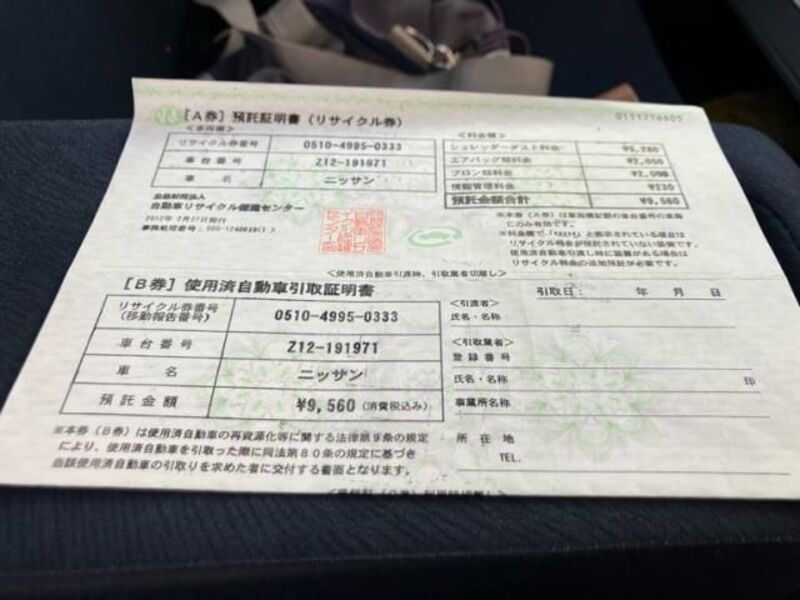 [A券] 預託証明書 (リサイクル券)
リサイクル券番号 0510-4995-0333
車台番号 Z12-191971
車名 ニッサン
自動車リサイクル促進センター
<料金額>
シュレッダーダスト料金
エアバッグ類料金 ¥2,050
フロン類料金
情報管理料金 ¥230
預託金額合計 ¥9,560
リサイクル料金が預託されていない装備です。
使用済自動車引渡し時に装備がある場合は
リサイクル料金の追加預託が必要です。
<使用済自動車引渡時、引取業者切離し>
[B券] 使用済自動車引取証明書
リサイクル券番号
(移動報告番号) 0510-4995-0333
車台番号 Z12-191971
車名 ニッサン
預託金額 ¥9,560 (消費税込み)
※本券(B券)は使用済自動車の再資源化等に関する法律第9条の規定
により、使用済自動車を引取った際に同法第80条の規定に基づき
当該使用済自動車の引取りを求めた者に交付する書面となります。
引取日: 年 月 日
<引渡者>
氏名・名称
<引取業者>
登録番号
氏名・名称 印
事業所名称
所在地
TEL.